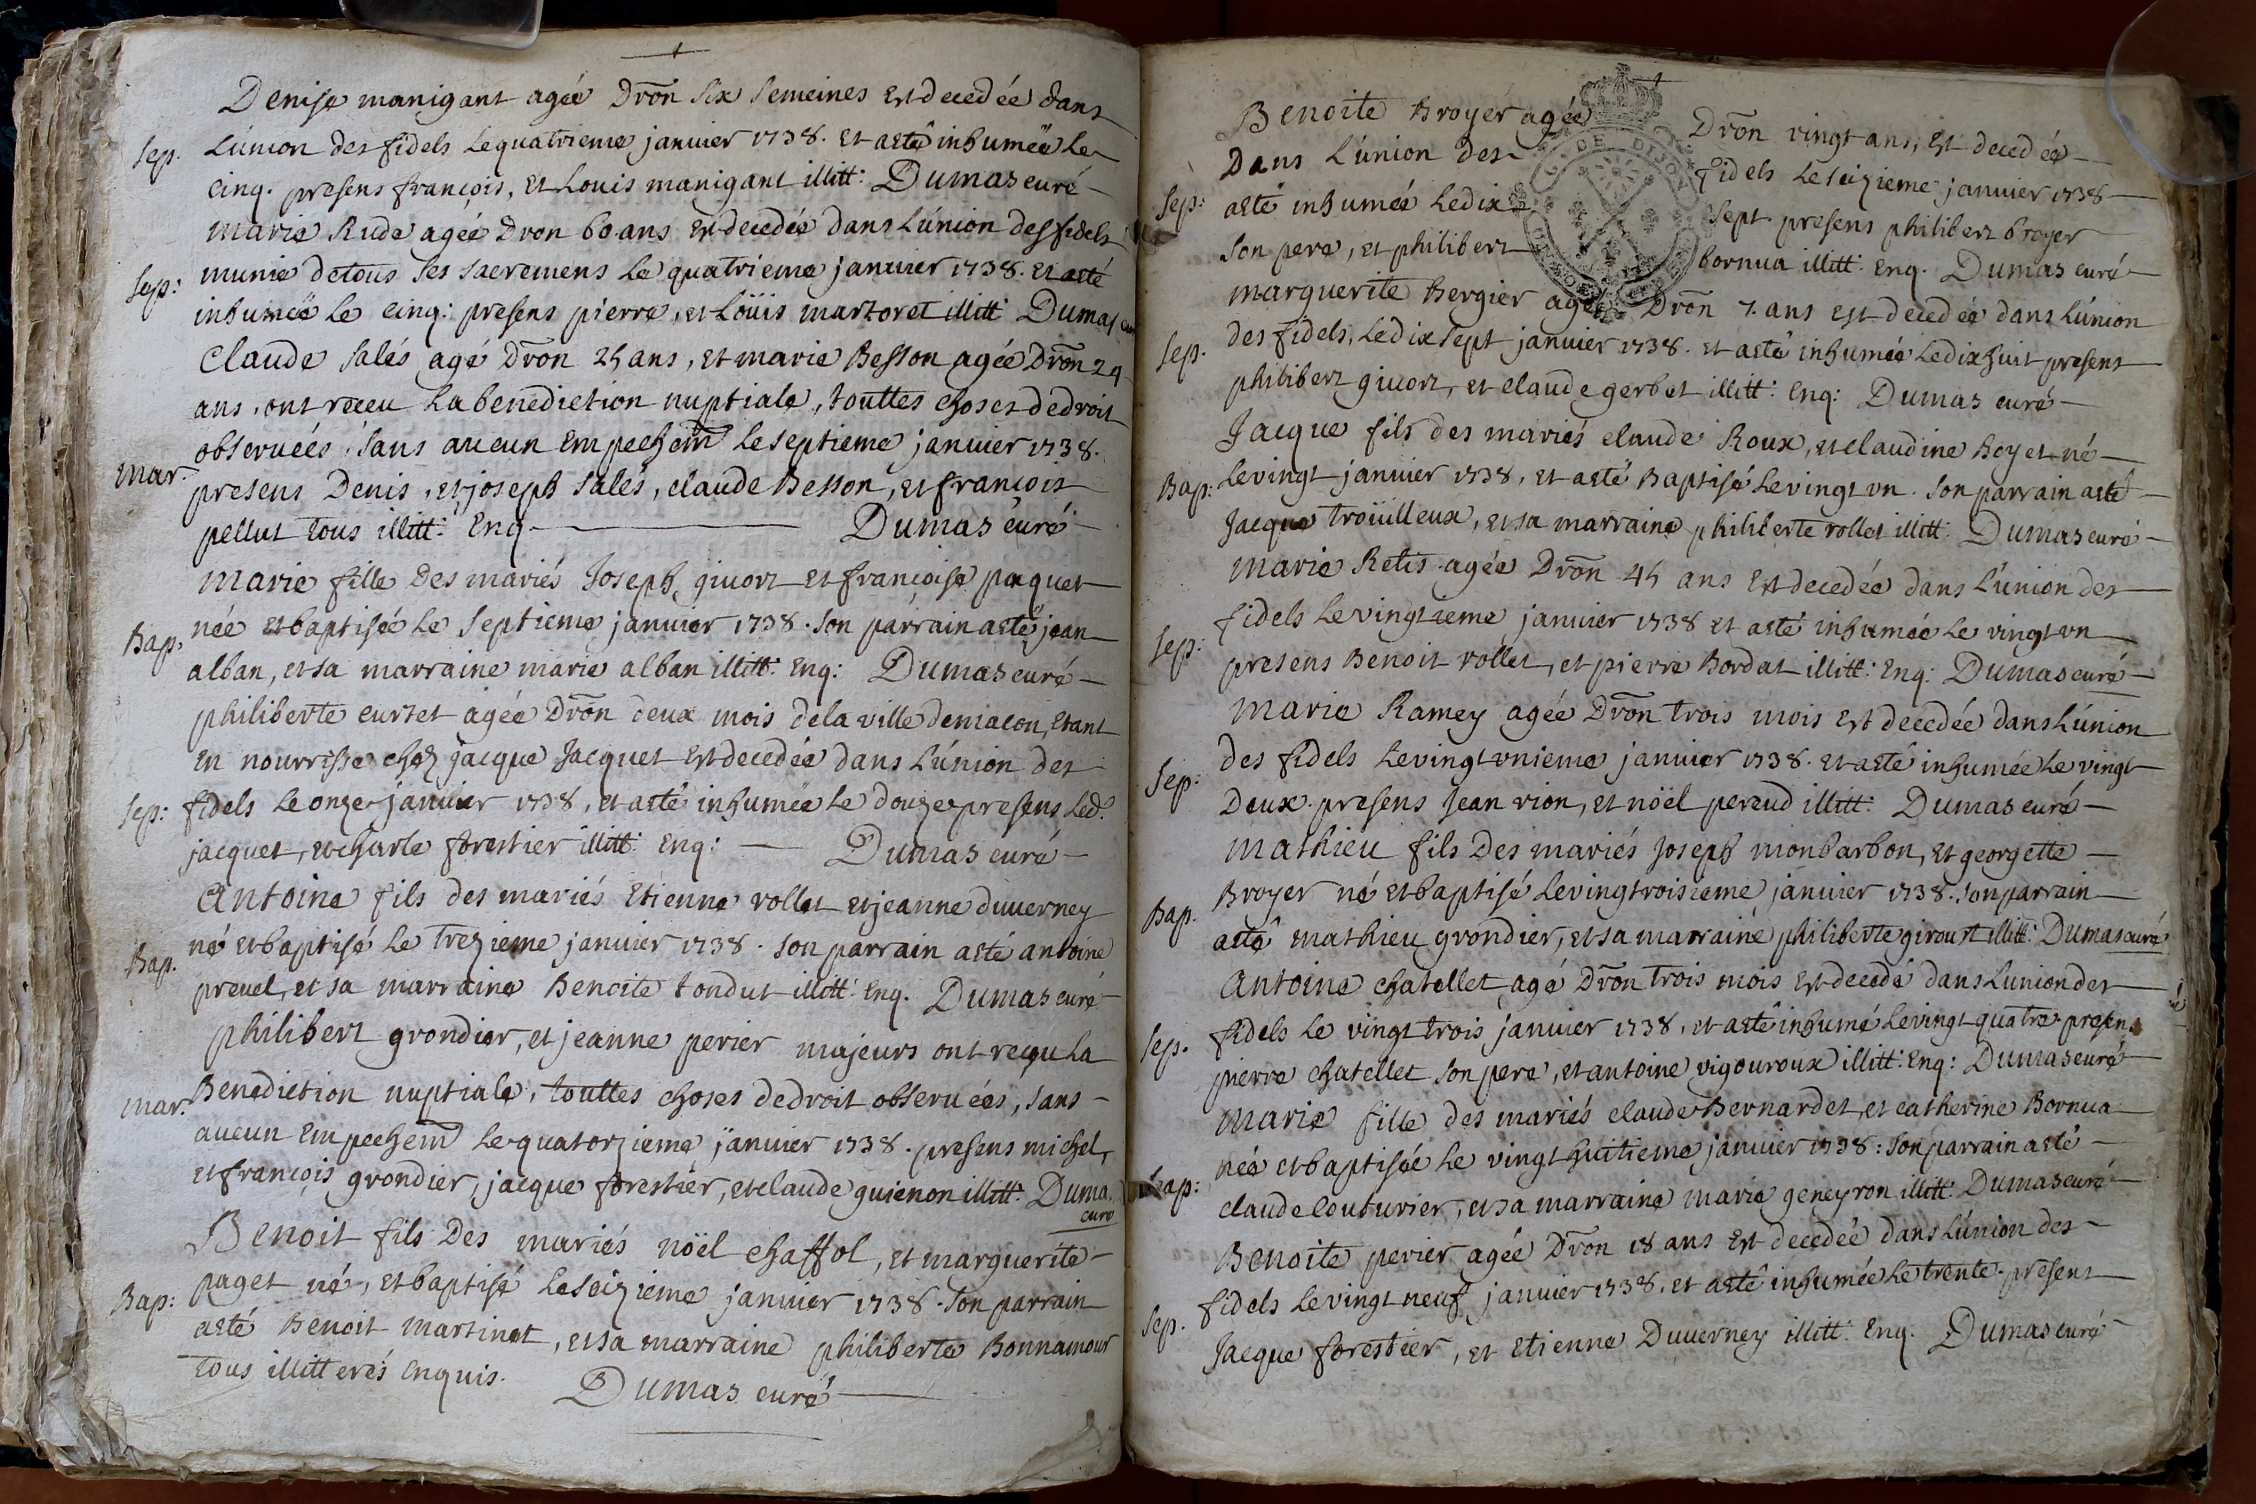 Denise manigant agée Dron six semeines est decedée dans
Sep. L'union des fidels le quatrieme janvier 1738. et a eté inhumée le
cinq. presens françois, et Louis manigant illitt: Dumas curé
marie Rude agée Dron 60 ans est decedée dans L'union des fidels
Sep: munie de tous ses sacremens le quatrieme janvier 1738. et a eté
inhumée le cinq: presens pierre, et Loüis martoret illitt: Dumas cu
Claude salés agé Dron 25 ans, et marie Besson agée Dron 24
ans, ont receu la benediction nuptiale, touttes choses de droit
observées, sans aucun empechem̃ le septieme janvier 1738.
mar. presens Denis, et joseph salés, claude Besson, et françois
pellut tous illitt: Enq. Dumas curé
marie fille des mariés Joseph givort et françoise paquet
Bap. née et baptisée le septieme janvier 1738. son parrain a eté jean
alban, et sa marraine marie alban illitt: Enq: Dumas curé
philiberte curtet agée Dron deux mois de la ville de macon, etant
en nourrisse chez jacque Jacquet est decedée dans L'union des
Sep: fidels le onze janvier 1738, et a eté inhumée le douze presens led.
jacquet, et charle forestier illitt: Enq: Dumas curé
Antoine fils des mariés Etienne rollet et jeanne duverney
Bap. né et baptisé le trezieme janvier 1738. son parrain a eté antoine
prevel, et sa marraine Benoite tondut illitt: Enq. Dumas curé
philibert grondier, et jeanne perier majeurs ont reçu la
mar. Benediction nuptiale, touttes choses de droit observées, sans
aucun empechem̃ le quatorzieme janvier 1738. presens michel,
et françois grondier, jacque forestier, et claude guienon illitt: Duma.
curé
Benoit fils des mariés noël chaffol, et marguerite
Bap: paget né, et baptisé le seizieme janvier 1738. son parrain
a eté Benoit martinet, et sa marraine philiberte Bonnamour
tous illitterés enquis. Dumas curé
Benoite Broyer agée Dron vingt ans, est decedée
Dans L'union des fidels le seizieme janvier 1738
Sep: a eté inhumée le dix sept presens philibert broyer
son pere, et philibert bornua illitt: Enq. Dumas curé
DE DIJON
marguerite Bergier agée Dron 7. ans est decedée dans L'union
Sep. des fidels, le dix sept janvier 1738. et a eté inhumée le dix huit presens
philibert givort, et claude gerbet illitt: Enq: Dumas curé
Jacque fils des mariés claude Roux, et claudine Boyet né
Bap: le vingt janvier 1738, et a eté Baptisé le vingt un. son parrain a eté
Jacque troüilleux, et sa marraine philiberte rollet illitt: Dumas curé
marie Retis agée Dron 45 ans est decedée dans L'union des
Sep: fidels le vingtieme janvier 1738 et a eté inhumée le vingt un
presens Benoit rollet, et pierre Bordat illitt: Enq: Dumas curé
marie Ramey agée Dron trois mois est decedée dans L'union
Sep: des fidels le vingt unieme janvier 1738. et a eté inhumée le vingt
Deux. presens Jean rion, et nöel perend illitt: Dumas curé
mathieu fils Des mariés Joseph monbarbon, et georgette
Bap. Broyer né et baptisé le vingtroisieme janvier 1738. son parrain
a eté mathieu grondier, et sa marraine philiberte giroust illitt: Dumas curé
Antoine chatellet agé Dron trois mois est decedé dans L'union des
Sep. fidels le vingt trois janvier 1738, et a eté inhumé le vingt quatre presens
pierre chatellet son pere, et antoine vigouroux illitt: Enq: Dumas curé
marie fille des mariés claude Bernardet, et catherine Bornua
Bap: née et baptisée le vingt huitieme janvier 1738: son parrain a eté
claude Couturier, et sa marraine marie geneyron illitt: Dumas curé
Benoite perier agée Dron 18 ans est decedée dans L'union des
Sep. fidels le vingt neuf janvier 1738. et a eté inhumée le trente. presens
Jacque forestier, et Etienne Duverney illitt: Enq. Dumas curé